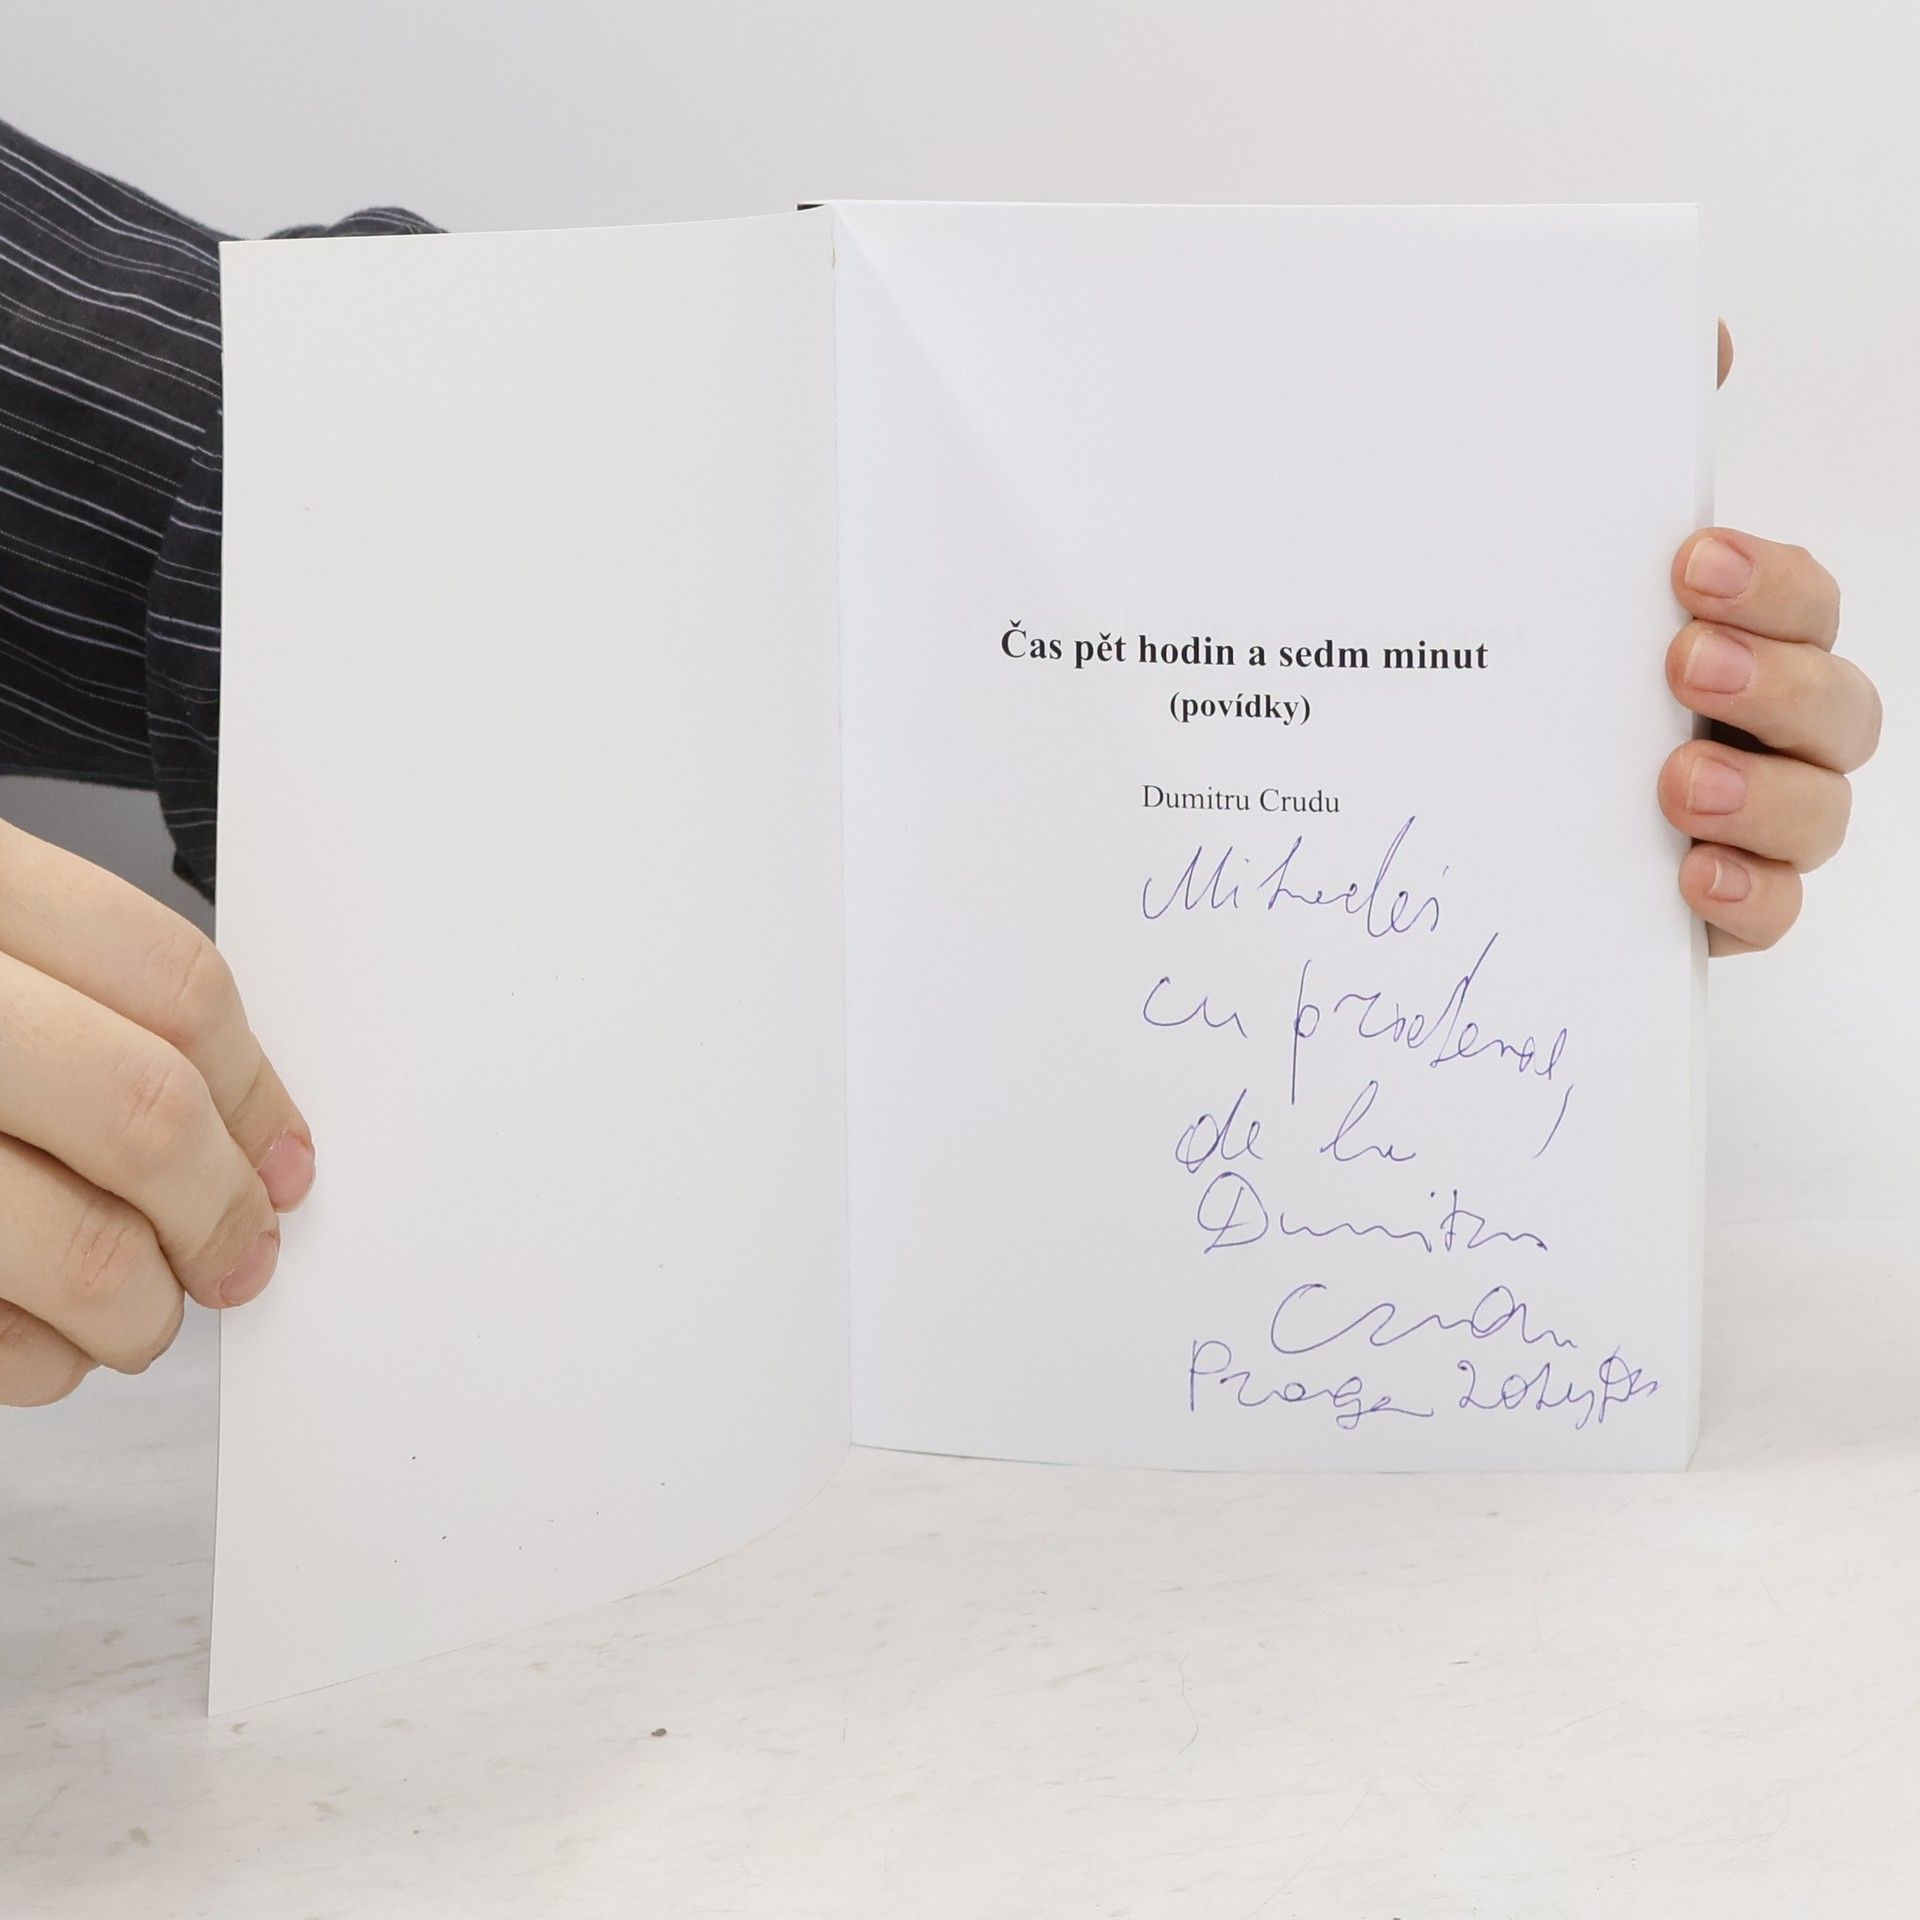 Čas pět hodin a sedm minut
(povídky)
Dumitru Crudu
cu prietenie,
de la
Dumitru
Crudu
Praga